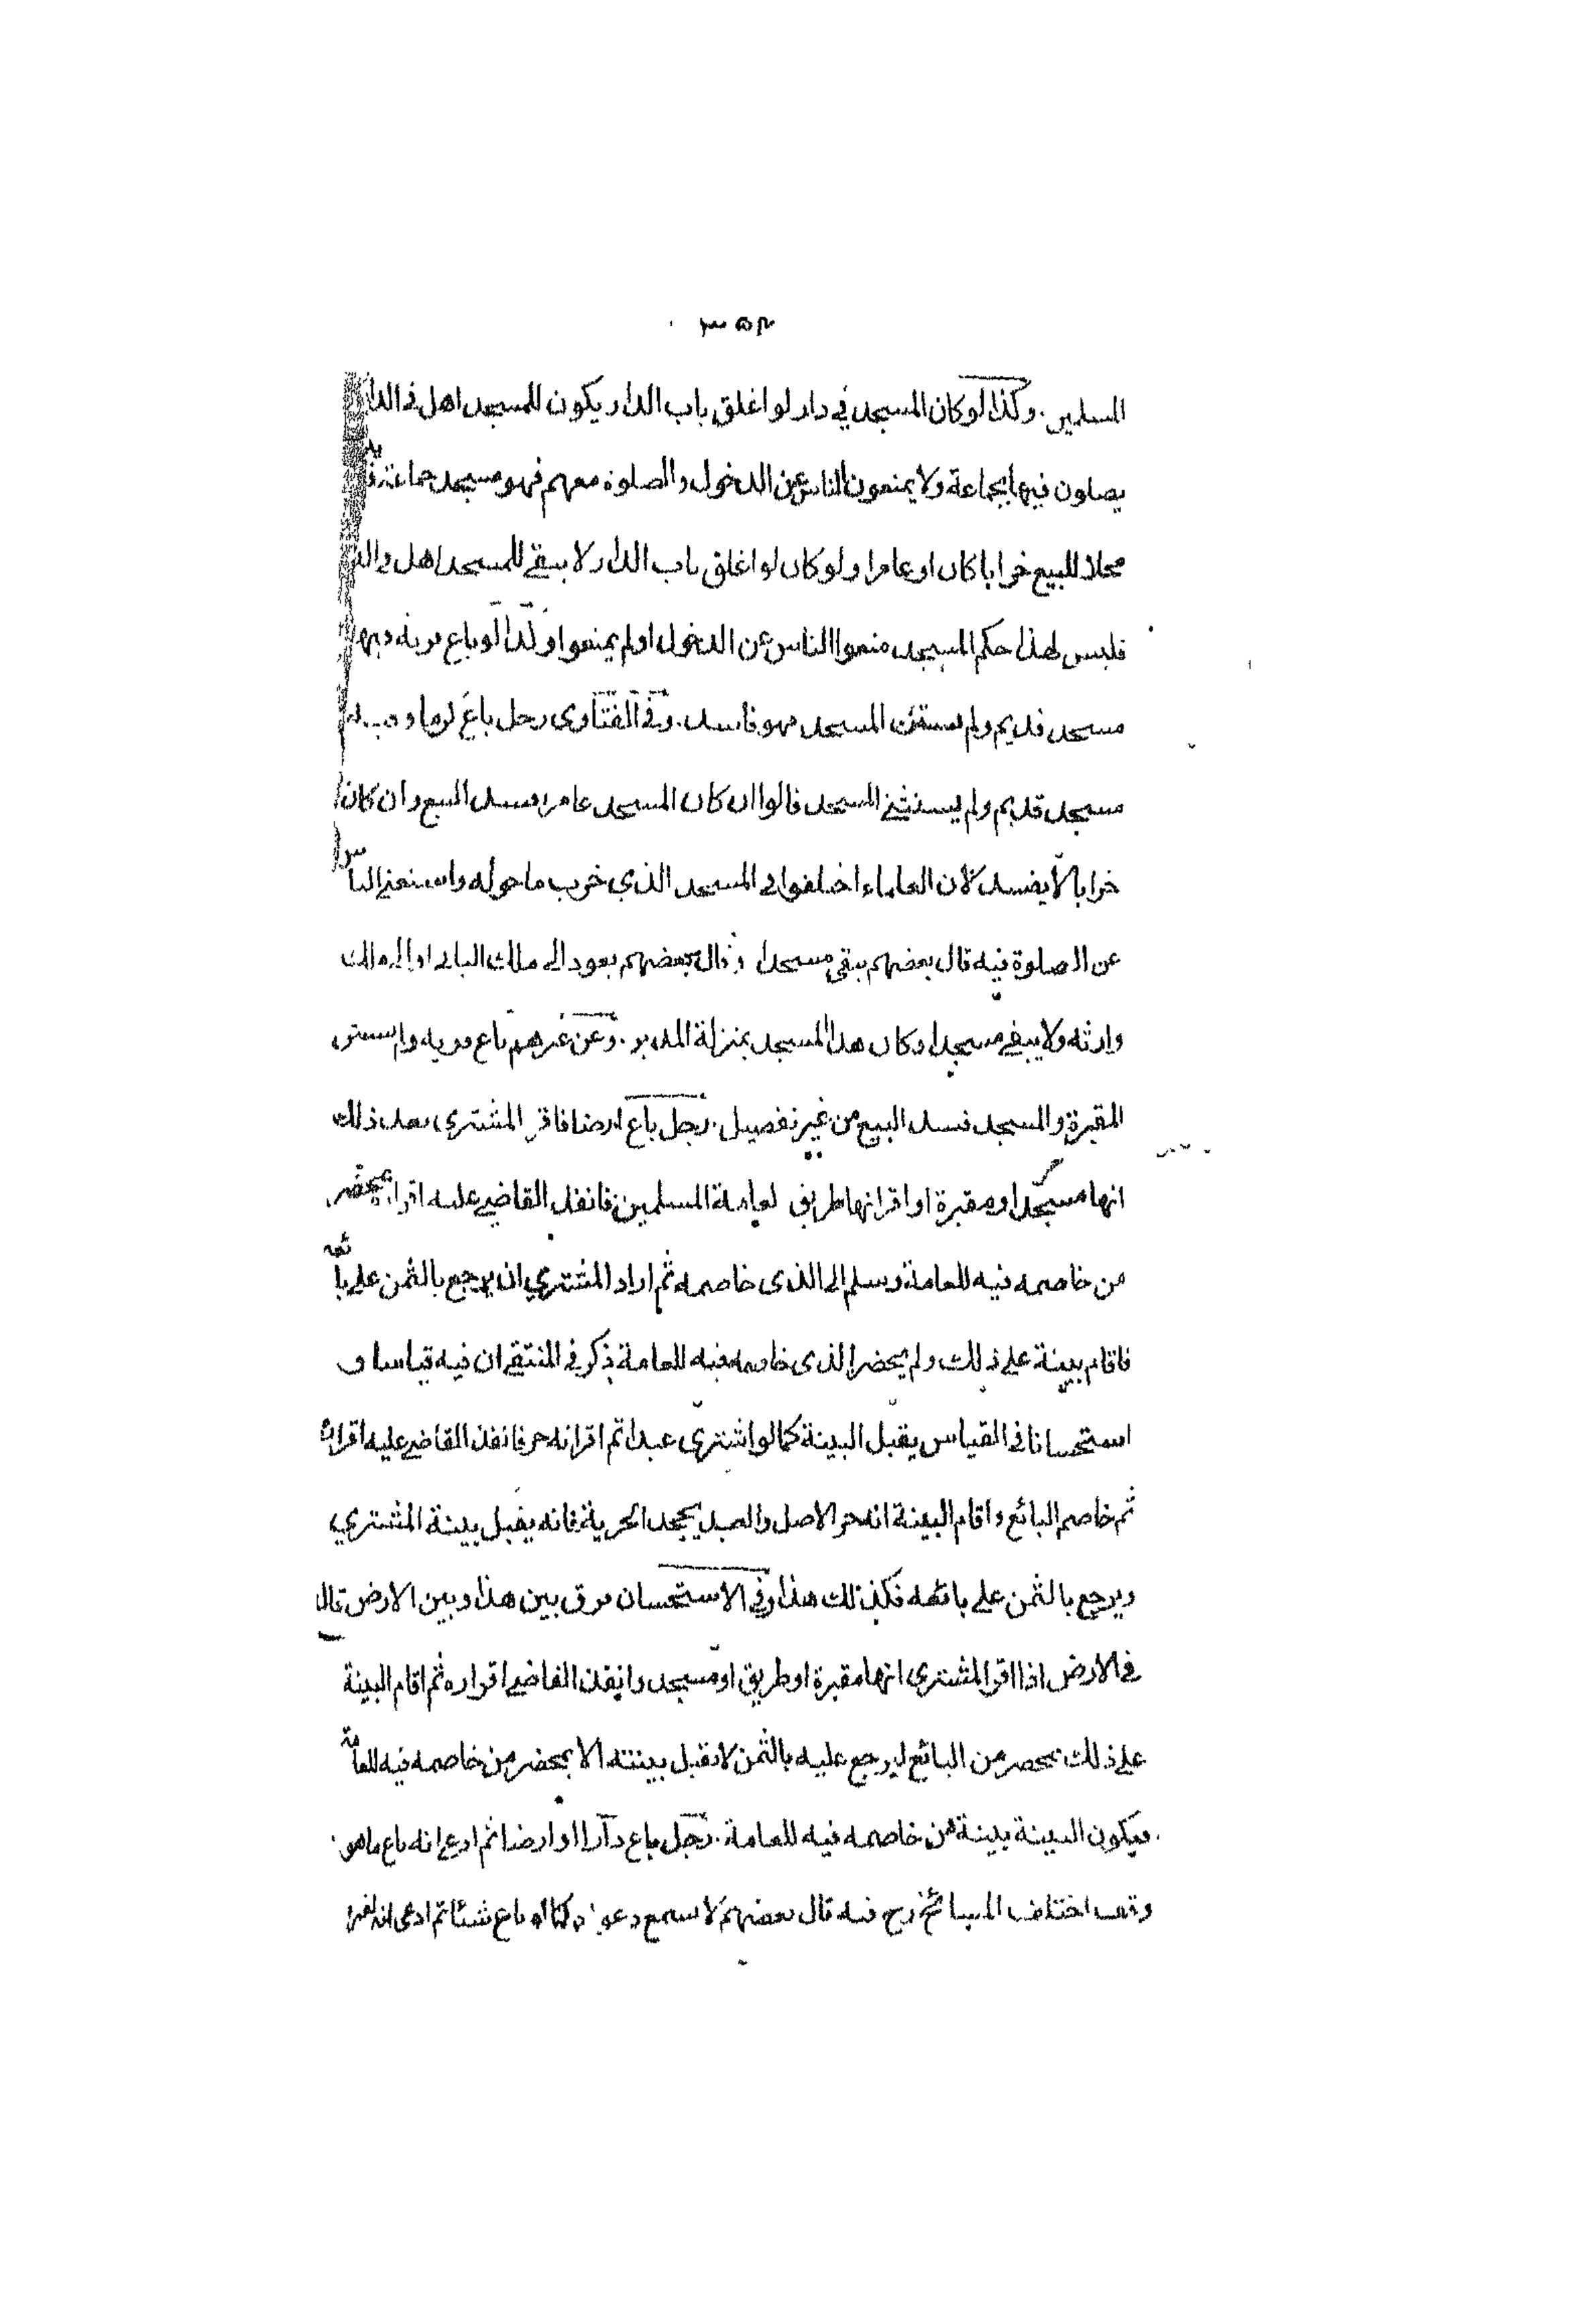 ٣٥٢
المسلمين. وكذا لو كان المسجد في دار لو اغلق باب الدار يكون للمسجد اهل في الدار
يصلون فيها بجماعة ولا يمنعون الناس عن الدخول والصلوة معهم فهو مسجد جماعة
محلا للبيع خرابا كان او عامرا ولو كان لو اغلق باب الدار لا يبقى للمسجد اهل في الدار
فليس لهذا حكم المسجد منعوا الناس عن الدخول او لم يمنعوا وكذا لو باع قرية وفيها
مسجد قديم ولم يستثن المسجد فهو فاسد. وفي الفتاوى رجل باع
مسجد قديم ولم يستثنى المسجد قالوا ان كان المسجد عامرا يفسد البيع وان كان
خرابا لا يفسد لان العلماء اختلفوا في المسجد الذي خرب ما حوله واستغنى الناس
عن الصلوة فيه قال بعضهم يبقى مسجدا وقال بعضهم يعود الى ملك الباني او الى ملك
وارثه ولا يبقى مسجدا وكان هذا المسجد بمنزلة المدبر. وعن غيرهم باع قرية ولم يستثن
المقبرة والمسجد فسد البيع من غير تفصيل. رجل باع ارضا فاقر المشتري بعد ذلك
انها مسجد او مقبرة او اقر انها طريق لعامة المسلمين فانفذ القاضي عليه اقراره بمحضر
من خاصمه فيه للعامة وسلم الى الذى خاصمه ثم اراد المشتري ان يرجع بالثمن على بائعه
فاقام بينة على ذلك ولم يحضر الذى خاصمه فيه للعامة ذكر في المنتقى ان فيه قياسا و
استحسانا في القياس يقبل البينة كما لو اشترى عبدا ثم اقر انه حر فانفذ القاضي عليه اقراره
ثم خاصم البائع واقام البينة انه حر الاصل والعبد يجحد الحرية فانه يقبل بينة المشتري
ويرجع بالثمن على بائعه فكذلك هذا وفي الاستحسان فرق بين هذا وبين الارض قال
في الارض اذا اقر المشترى انها مقبرة او طريق او مسجد وانفذ القاضي اقراره ثم اقام البينة
على ذلك بمحضر من البائع ليرجع عليه بالثمن لا تقبل بينته الا بمحضر من خاصمه فيه للعامة
فيكون البينة بينة من خاصمه فيه للعامة. رجل باع دارا او ارضا ثم ادعى انه باع ما هو
وقف اختلف المشائخ رح فيه قال بعضهم لا تسمع دعواه كما لو باع شئا ثم ادعى انه لغيره